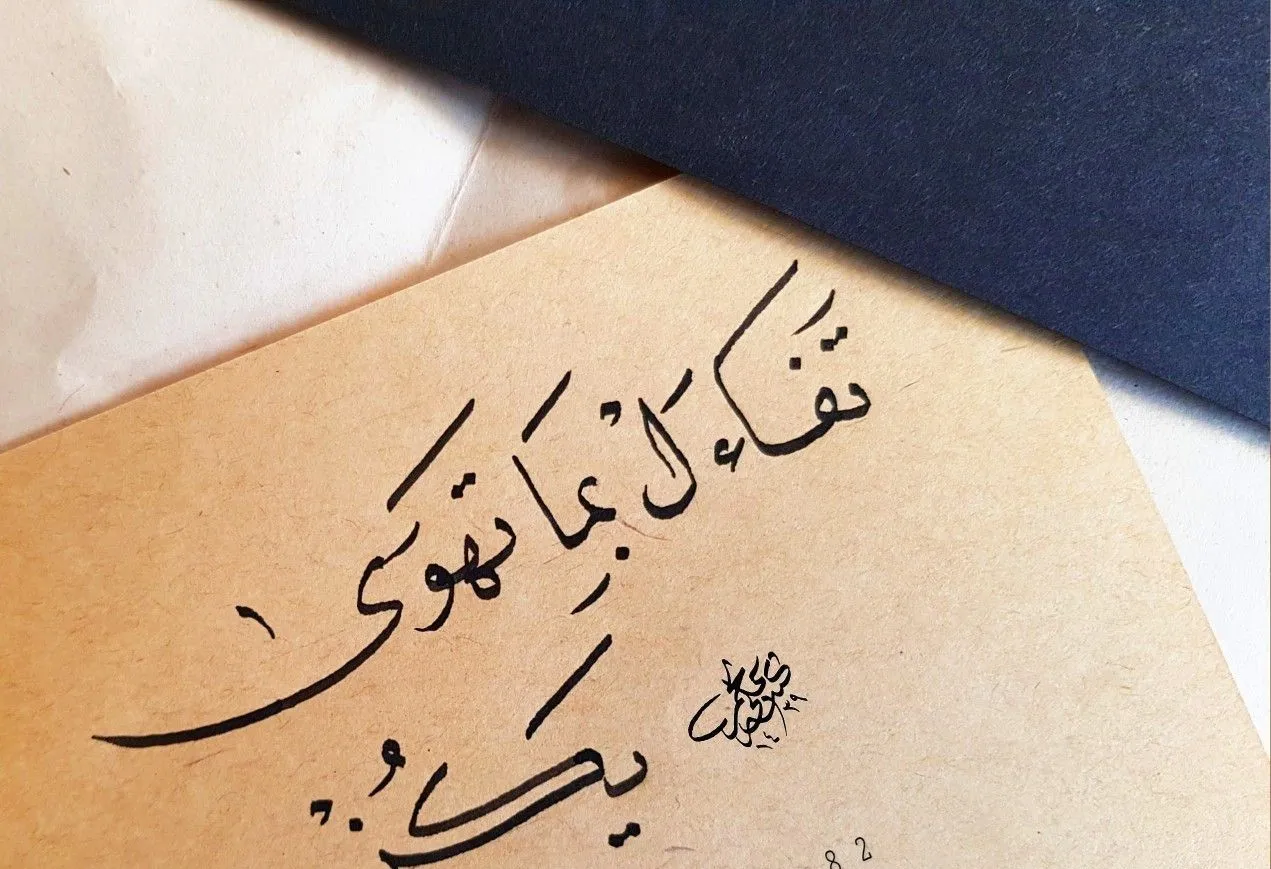 تَفَاءَلْ بِمَا تَهْوَى
يَكُنْ
82